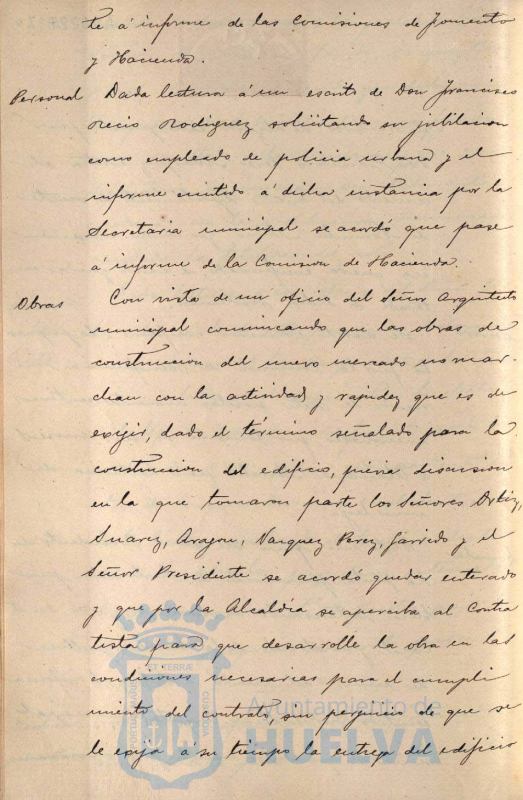 te á informe de las Comisiones de Fomento
y Hacienda.
Personal Dada lectura á un escrito de Don Francisco
Recio Rodriguez solicitando su jubilacion
como empleado de policia urbana y el
informe emitido á dicha instancia por la
Secretaria municipal se acordó que pase
á informe de la Comision de Hacienda.
Obras Con vista de un oficio del Señor Arquitecto
municipal comunicando que las obras de
construccion del nuevo mercado no mar-
chan con la actividad y rapidez que es de
exijir, dado el término señalado para la
construccion del edificio, prévia discusion
en la que tomaron parte los Señores Ortiz,
Suarez, Aragon, Vazquez Perez, Garrido y el
Señor Presidente se acordó quedar enterado
y que por la Alcaldía se aperciba al Contra
tista para que desarrolle la obra en las
condiciones necesarias para el cumpli
miento del contrato, sin perjuicio de que se
le exija á su tiempo la entrega del edificio
ET TERRÆ
Ayuntamiento de
HUELVA